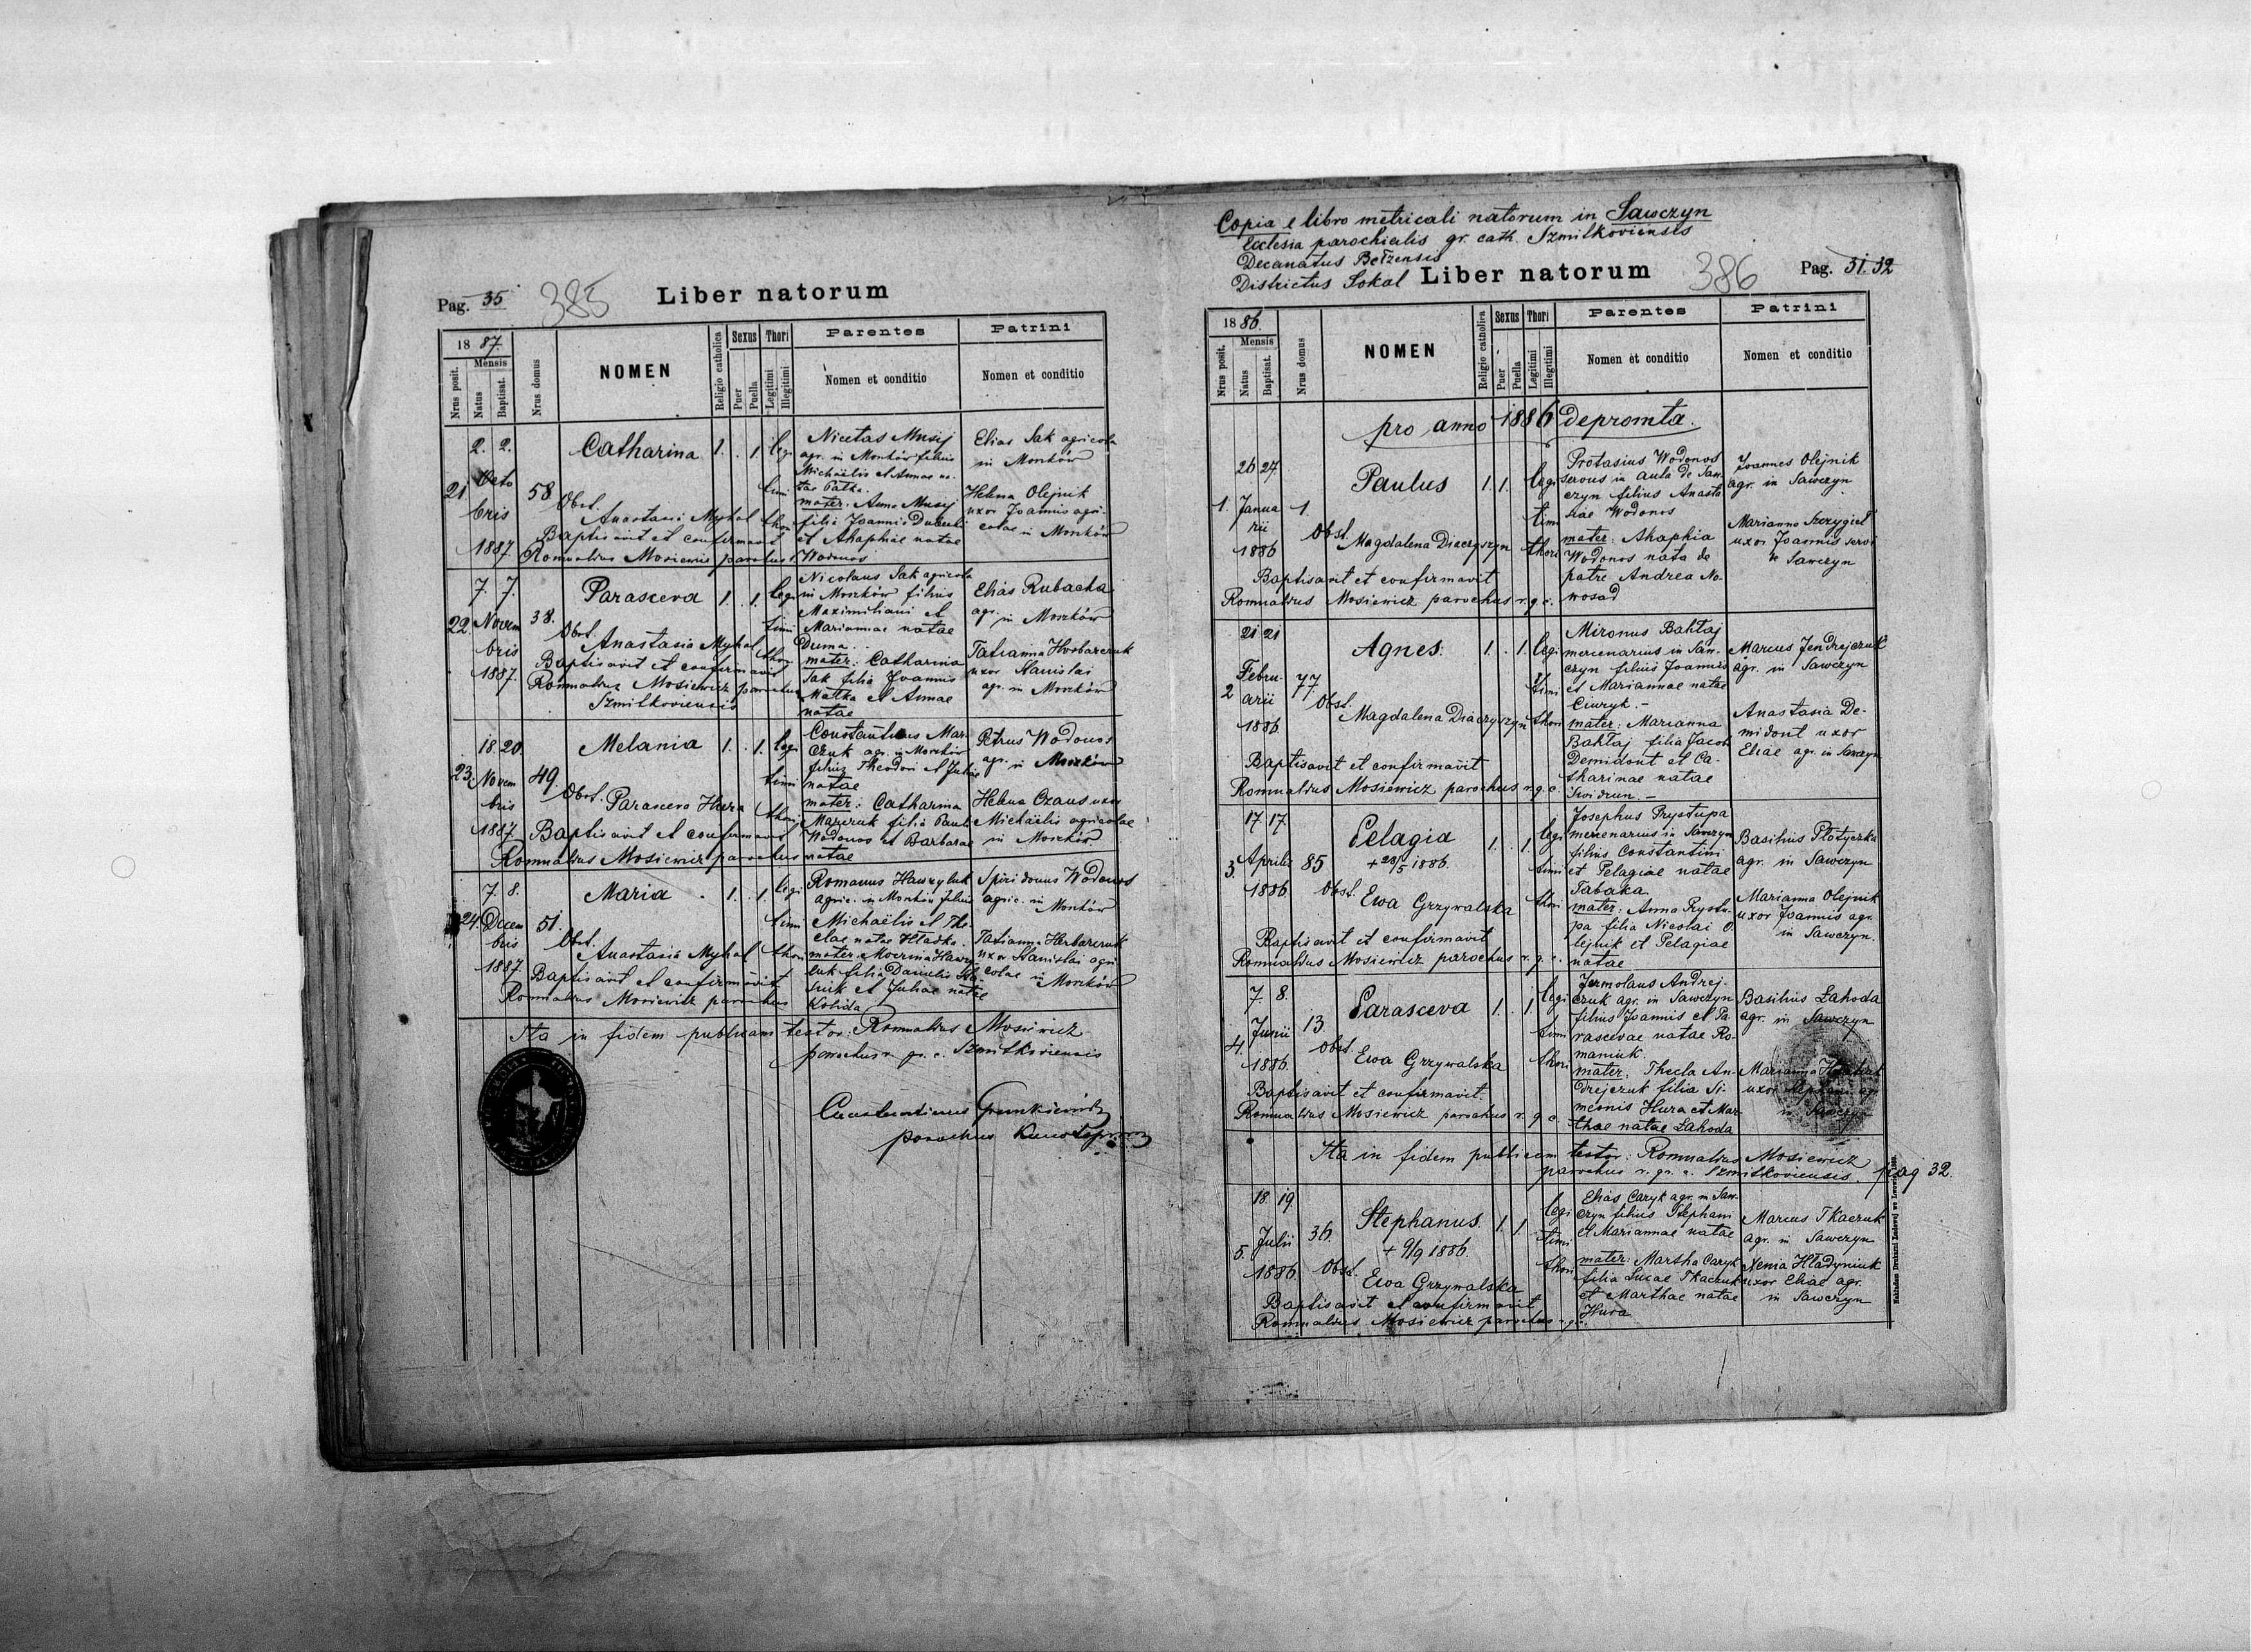 Pag. 35
385
Liber natorum
18 87.
Nrus posit.
Mensis
Natus
Baptisat.
Nrus domus
NOMEN
Religio catholica
Sexus
Puer
Puella
Thori
Legitimi
Illegitimi
Parentes
Nomen et conditio
Patrini
Nomen et conditio
21.
2. 2.
Octo
bris
1887
58
Catharina
1. . 1.
legi
timi
thori
Obst.
Anastasia Mykal
Baptisavit et confirmavit
Romualdus Mosiewicz parochus
Nicetas Musij
agr. in Moszków filius
Michaëlis et Annae na-
tae Patka.
mater: Anna Musij
filia Joannis Dudecki
et Ahaphiae natae
Wodonos
Elias Sak agricola
in Moszków
Helena Olejnik
uxor Joannis agri-
colae in Moszków
22.
7. 7.
Novem
bris
1887.
38.
Parasceva
1. . 1.
legi
timi
thori
Obst.
Anastasia Mykal
Baptisavit et confirmavit
Romualdus Mosiewicz parochus
Szmitkoviensis
Nicolaus Sak agricola
in Moszków filius
Maximiliani et
Mariannae natae
Duma.
mater: Catharina
Sak filia Joannis
Matka et Annae
natae
Elias Rubacha
agr. in Moszków
Tatianna Horbaczuk
uxor Stanislai
agr. in Moszków
23.
18. 20.
Novem
bris
1887.
49.
Melania
1. . 1.
legi
timi
thori
Obst. Parasceva Hura
Baptisavit et confirmavit
Romualdus Mosiewicz parochus
Constantinus Mar-
czuk agr. in Moszków
filius Theodori et Juliae
natae
mater: Catharina
Marczuk filia Pauli
Wodonos et Barbarae
natae
Petrus Wodonos
agr. in Moszków
Helena Czaus uxor
Michaëlis agricolae
in Moszków
24.
7. 8.
Decem
bris
1887.
51.
Maria
1. . 1.
legi
timi
thori
Obst.
Anastasia Mykal
Baptisavit et confirmavit
Romualdus Mosiewicz parochus
Romanus Hawryluk
agric. in Moszków filius
Michaëlis et The-
clae natae Hladko.
mater: Hawry-
luk filia Danielis
et Juliae natae
Kolida
Spiridonus Wodonos
agric. in Moszków
Tatianna Horbaczuk
uxor Stanislai agri-
colae in Moszków
Ita in fidem publicam testor: Romualdus Mosiewicz
parochus r. gr. c. Szmitkoviensis
Constantinus
parochus
Copia e libro metricali natorum in Sawczyn
Ecclesia parochialis gr. cath. Szmitkoviensis
Decanatus Bełzensis
Districtus Sokal
Liber natorum
386
Pag. 31. 32
18 86.
Nrus posit.
Mensis
Natus
Baptisat.
Nrus domus
NOMEN
Religio catholica
Sexus
Puer
Puella
Thori
Legitimi
Illegitimi
Parentes
Nomen et conditio
Patrini
Nomen et conditio
pro anno 1886 depromta.
1.
26 27
Janua
rii
1886
1.
Paulus
1. 1.
legi
timi
thori
Obst. Magdalena Diaczyszyn
Baptisavit et confirmavit
Romualdus Mosiewicz parochus r. g. c.
Protasius Wodonos
servus in aula de Saw-
czyn filius Anasta
siae Wodonos
mater: Ahaphia
Wodonos nata de
patre Andrea No-
wosad
Joannes Olejnik
agr. in Sawczyn
Marianna Szczygieł
uxor Joannis servi
de Sawczyn
2
21 21
Febru-
arii
1886
77
Agnes.
1. . 1.
legi
timi
thori
Obst.
Magdalena Diaczyszyn
Baptisavit et confirmavit
Romualdus Mosiewicz parochus r. g. c.
Mironus Bahłaj
mercenarius in Saw-
czyn filius Joannis
et Mariannae natae
Ciuryk.-
mater: Marianna
Bahłaj filia Jacobi
Demidont et Ca-
tharinae natae
Swidrun.-
Marcus Jendrejczuk
agr. in Sawczyn
Anastasia De-
midont uxor
Eliae agr. in Sawczyn
3.
17. 17.
Aprilis
1886.
85
Pelagia
+ 28/5 1886.
1. . 1.
legi
timi
thori
Obst. Ewa Grzywalska
Baptisavit et confirmavit
Romualdus Mosiewicz parochus r. g. c.
Josephus Prystupa
mercenarius in Sawczyn
filius Constantini
et Pelagiae natae
Tabaka.
mater: Anna Prystu-
pa filia Nicolai O-
lejnik et Pelagiae
natae
Basilius Płotyczka
agr. in Sawczyn
Marianna Olejnik
uxor Joannis agr.
in Sawczyn.
4.
7. 8.
Junii
1886.
13.
Parasceva
1. . 1.
legi
timi
thori
Obst. Ewa Grzywalska
Baptisavit et confirmavit.
Romualdus Mosiewicz parochus r. g. c.
Jermolaus Andrej-
czuk agr. in Sawczyn
filius Joannis et Pa-
rascevae natae Ro-
maniuk.
mater: Thecla An-
drejczuk filia Si-
meonis Hura et Mar-
thae natae Łahoda
Basilius Łahoda
agr. in Sawczyn
Marianna
uxor Stephani agr.
in Sawczyn
Ita in fidem publicam testor: Romualdus Mosiewicz
parochus r. gr. c. Szmitkoviensis.
pag 32.
5.
18. 19.
Julii
1886.
36.
Stephanus.
+ 9/9 1886.
1. 1.
legi
timi
thori
Obst. Ewa Grzywalska
Baptisavit et confirmavit
Romualdus Mosiewicz parochus r. g. c.
Elias Caryk agr. in Saw-
czyn filius Stephani
et Mariannae natae
mater: Martha Caryk
filia Lucae Tkaczuk
et Marthae natae
Hura
Marcus Tkaczuk
agr. in Sawczyn
Xenia Hładyniuk
uxor Eliae agr.
in Sawczyn